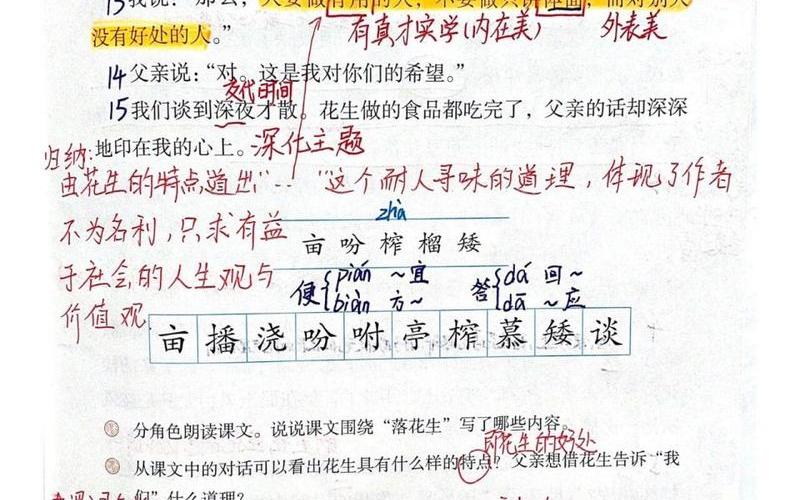 13我说：“那么，人要做有用的人，不要做只讲体面，而对别人
没有好处的人。” 有真才实学(内在美) 外表美
14父亲说：“对。这是我对你们的希望。”
交代时间
15我们谈到深夜才散。花生做的食品都吃完了，父亲的话却深深
地印在我的心上。深化主题
归纳：
由花生的特点道出“…”这个耐人寻味的道理，体现了作者
不为名利，只求有益
于社会的人生观与
价值观
zhà
亩 吩 榨 榴 矮
便 pián ～宜 biàn 方～
答 dá 回～ dā ～应
亩 播 浇 吩 咐 亭 榨 慕 矮 谈
分角色朗读课文。说说课文围绕“落花生”写了哪些内容。
即花生的好处
从课文中的对话可以看出花生具有什么样的特点？父亲想借花生告诉“我
们”什么道理？